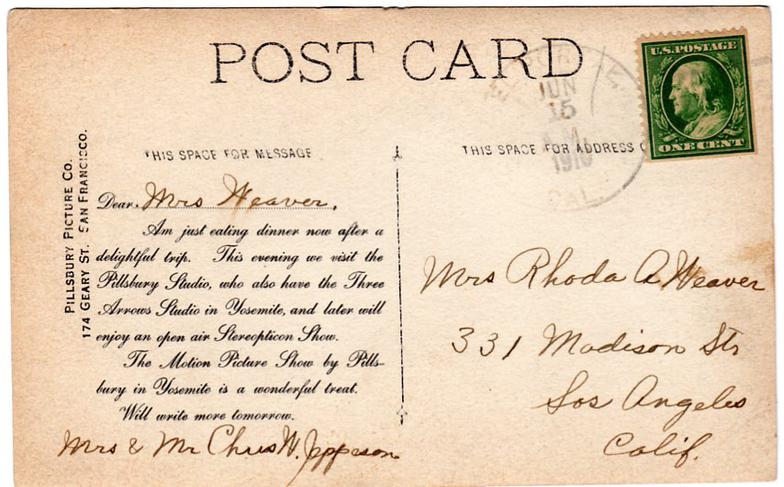 POST CARD
U.S. POSTAGE
ONE CENT
JUN
15
A.M.
1910
CAL.
THIS SPACE FOR MESSAGE
THIS SPACE FOR ADDRESS O
PILLSBURY PICTURE CO.
174 GEARY ST. SAN FRANCISCO.
Dear Mrs Weaver,
Am just eating dinner now after a
delightful trip. This evening we visit the
Pillsbury Studio, who also have the Three
Arrows Studio in Yosemite, and later will
enjoy an open air Stereopticon Show.
The Motion Picture Show by Pills-
bury in Yosemite is a wonderful treat.
Will write more tomorrow.
Mrs & Mr Chris W. Jeppeson
Mrs Rhoda A Weaver
331 Madison Str
Los Angeles
Calif.